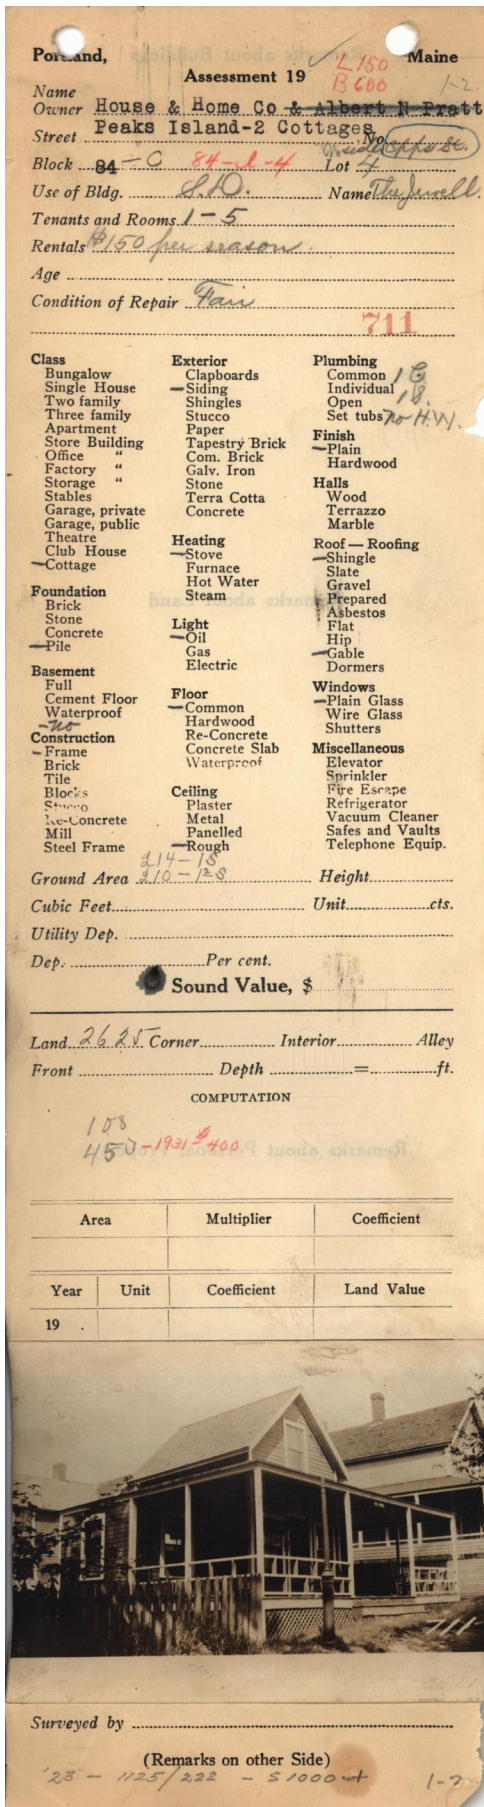 Portland, Maine
Assessment 19
L 150
B 600
1-2
Name
Owner House & Home Co & Albert N Pratt
Street Peaks Island-2 Cottages No. oppo St.
Block 84-C 84-d-4 Lot 4
Use of Bldg. S.D. Name The Jewell.
Tenants and Rooms 1-5
Rentals $150 per season.
Age
Condition of Repair Fair
711
Class
Bungalow
Single House
Two family
Three family
Apartment
Store Building
Office "
Factory "
Storage "
Stables
Garage, private
Garage, public
Theatre
Club House
Cottage
Foundation
Brick
Stone
Concrete
Pile
Basement
Full
Cement Floor
Waterproof
no
Construction
Frame
Brick
Tile
Blocks
Stucco
Re-Concrete
Mill
Steel Frame
Exterior
Clapboards
Siding
Shingles
Stucco
Paper
Tapestry Brick
Com. Brick
Galv. Iron
Stone
Terra Cotta
Concrete
Heating
Stove
Furnace
Hot Water
Steam
Light
Oil
Gas
Electric
Floor
Common
Hardwood
Re-Concrete
Concrete Slab
Waterproof
Ceiling
Plaster
Metal
Panelled
Rough
Plumbing
Common 1 C
Individual 1 S.
Open
Set tubs no H.W.
Finish
Plain
Hardwood
Halls
Wood
Terrazzo
Marble
Roof — Roofing
Shingle
Slate
Gravel
Prepared
Asbestos
Flat
Hip
Gable
Dormers
Windows
Plain Glass
Wire Glass
Shutters
Miscellaneous
Elevator
Sprinkler
Fire Escape
Refrigerator
Vacuum Cleaner
Safes and Vaults
Telephone Equip.
214-1S
Ground Area 210-1½S Height
Cubic Feet Unit cts.
Utility Dep.
Dep. Per cent.
Sound Value, $
Land 2625 Corner Interior Alley
Front Depth = ft.
COMPUTATION
108
450 -1931-$400
Area Multiplier Coefficient
Year Unit Coefficient Land Value
19 .
711-
Surveyed by
(Remarks on other Side)
'23 - 1125/222 - S1000 + 1-2